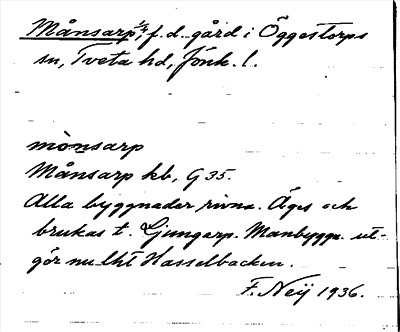 Månsarp 1/4, f. d. gård i Öggestorps
sn, Tveta hd, Jönk. l.
mònsarp
Månsarp kb, G 35.
Alla byggnader rivna. Äges och
brukas t. Ljungarp. Manbyggn. ut-
gör nu lht Hasselbacken.
F. Neij 1936.